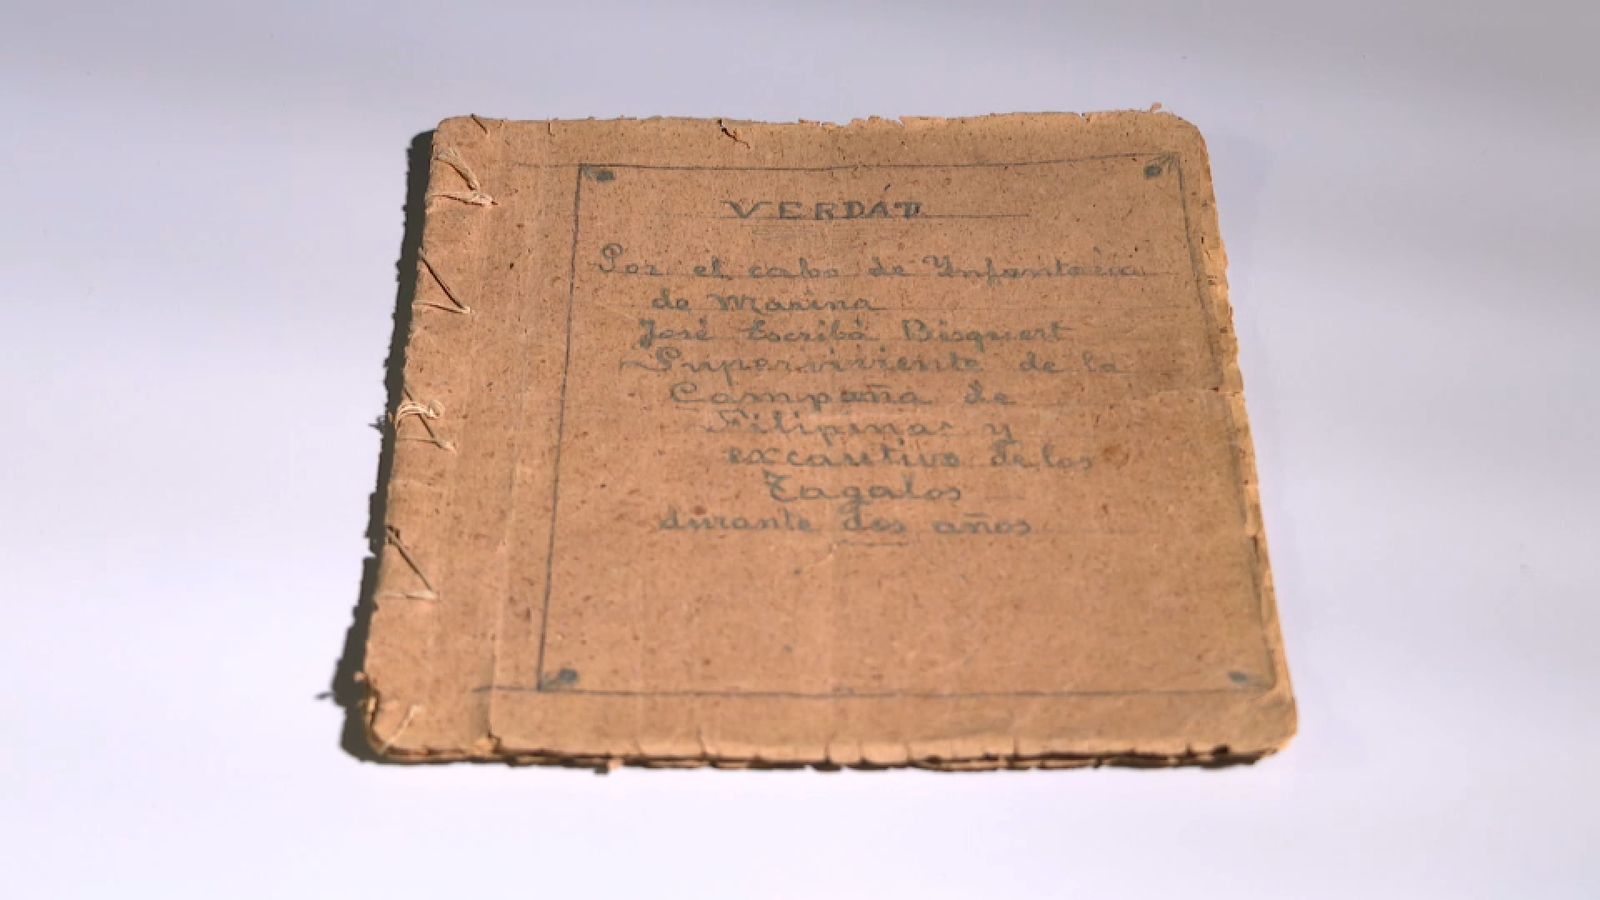 VERDÁD
Por el cabo de Ynfanteria
de Marina
José Escribá Bisquert
Superviviente de la
Campaña de
Filipinas y
excautivo de los
Tagalos
durante dos años